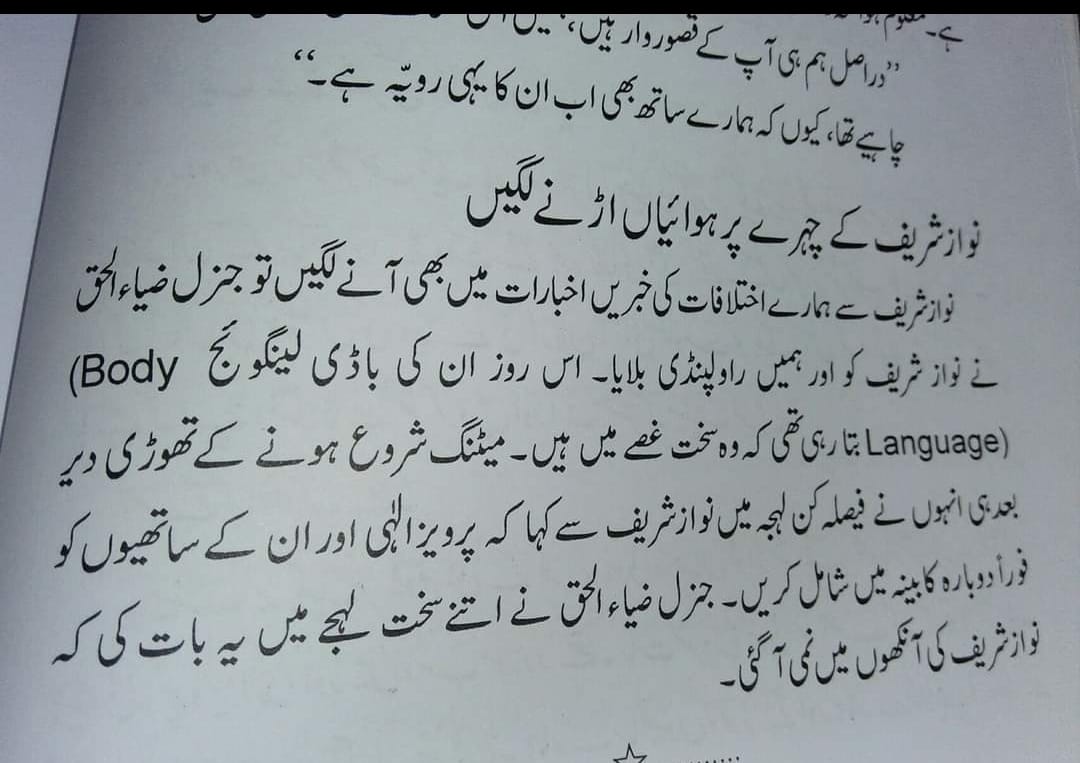 ہے۔ معلوم ہوا
’’دراصل ہم ہی آپ کے قصوروار ہیں،
چاہیے تھا، کیوں کہ ہمارے ساتھ بھی اب ان کا یہی رویّہ ہے۔‘‘
نوازشریف کے چہرے پر ہوائیاں اڑنے لگیں
نوازشریف سے ہمارے اختلافات کی خبریں اخبارات میں بھی آنے لگیں تو جنرل ضیاء الحق
نے نواز شریف کو اور ہمیں راولپنڈی بلایا۔ اس روز ان کی باڈی لینگوئج (Body
Language) بتا رہی تھی کہ وہ سخت غصے میں ہیں۔ میٹنگ شروع ہونے کے تھوڑی دیر
بعد ہی انہوں نے فیصلہ کن لہجہ میں نوازشریف سے کہا کہ پرویزالٰہی اور ان کے ساتھیوں کو
فوراً دوبارہ کابینہ میں شامل کریں۔ جنرل ضیاء الحق نے اتنے سخت لہجے میں یہ بات کی کہ
نوازشریف کی آنکھوں میں نمی آ گئی۔